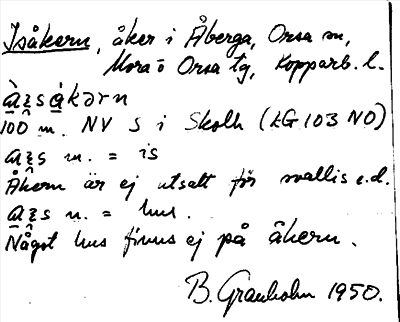 Isåkern, åker i Åberga, Orsa sn,
Mora o Orsa tg, Kopparb. l.
àı̯sákərn
100 m. NV S i Skolh (LG 103 NO)
aı̯s m. = is
Åkern är ej utsatt för svallis e.d.
aı̯s n. = hus.
Något hus finns ej på åkern.
B. Granholm 1950.